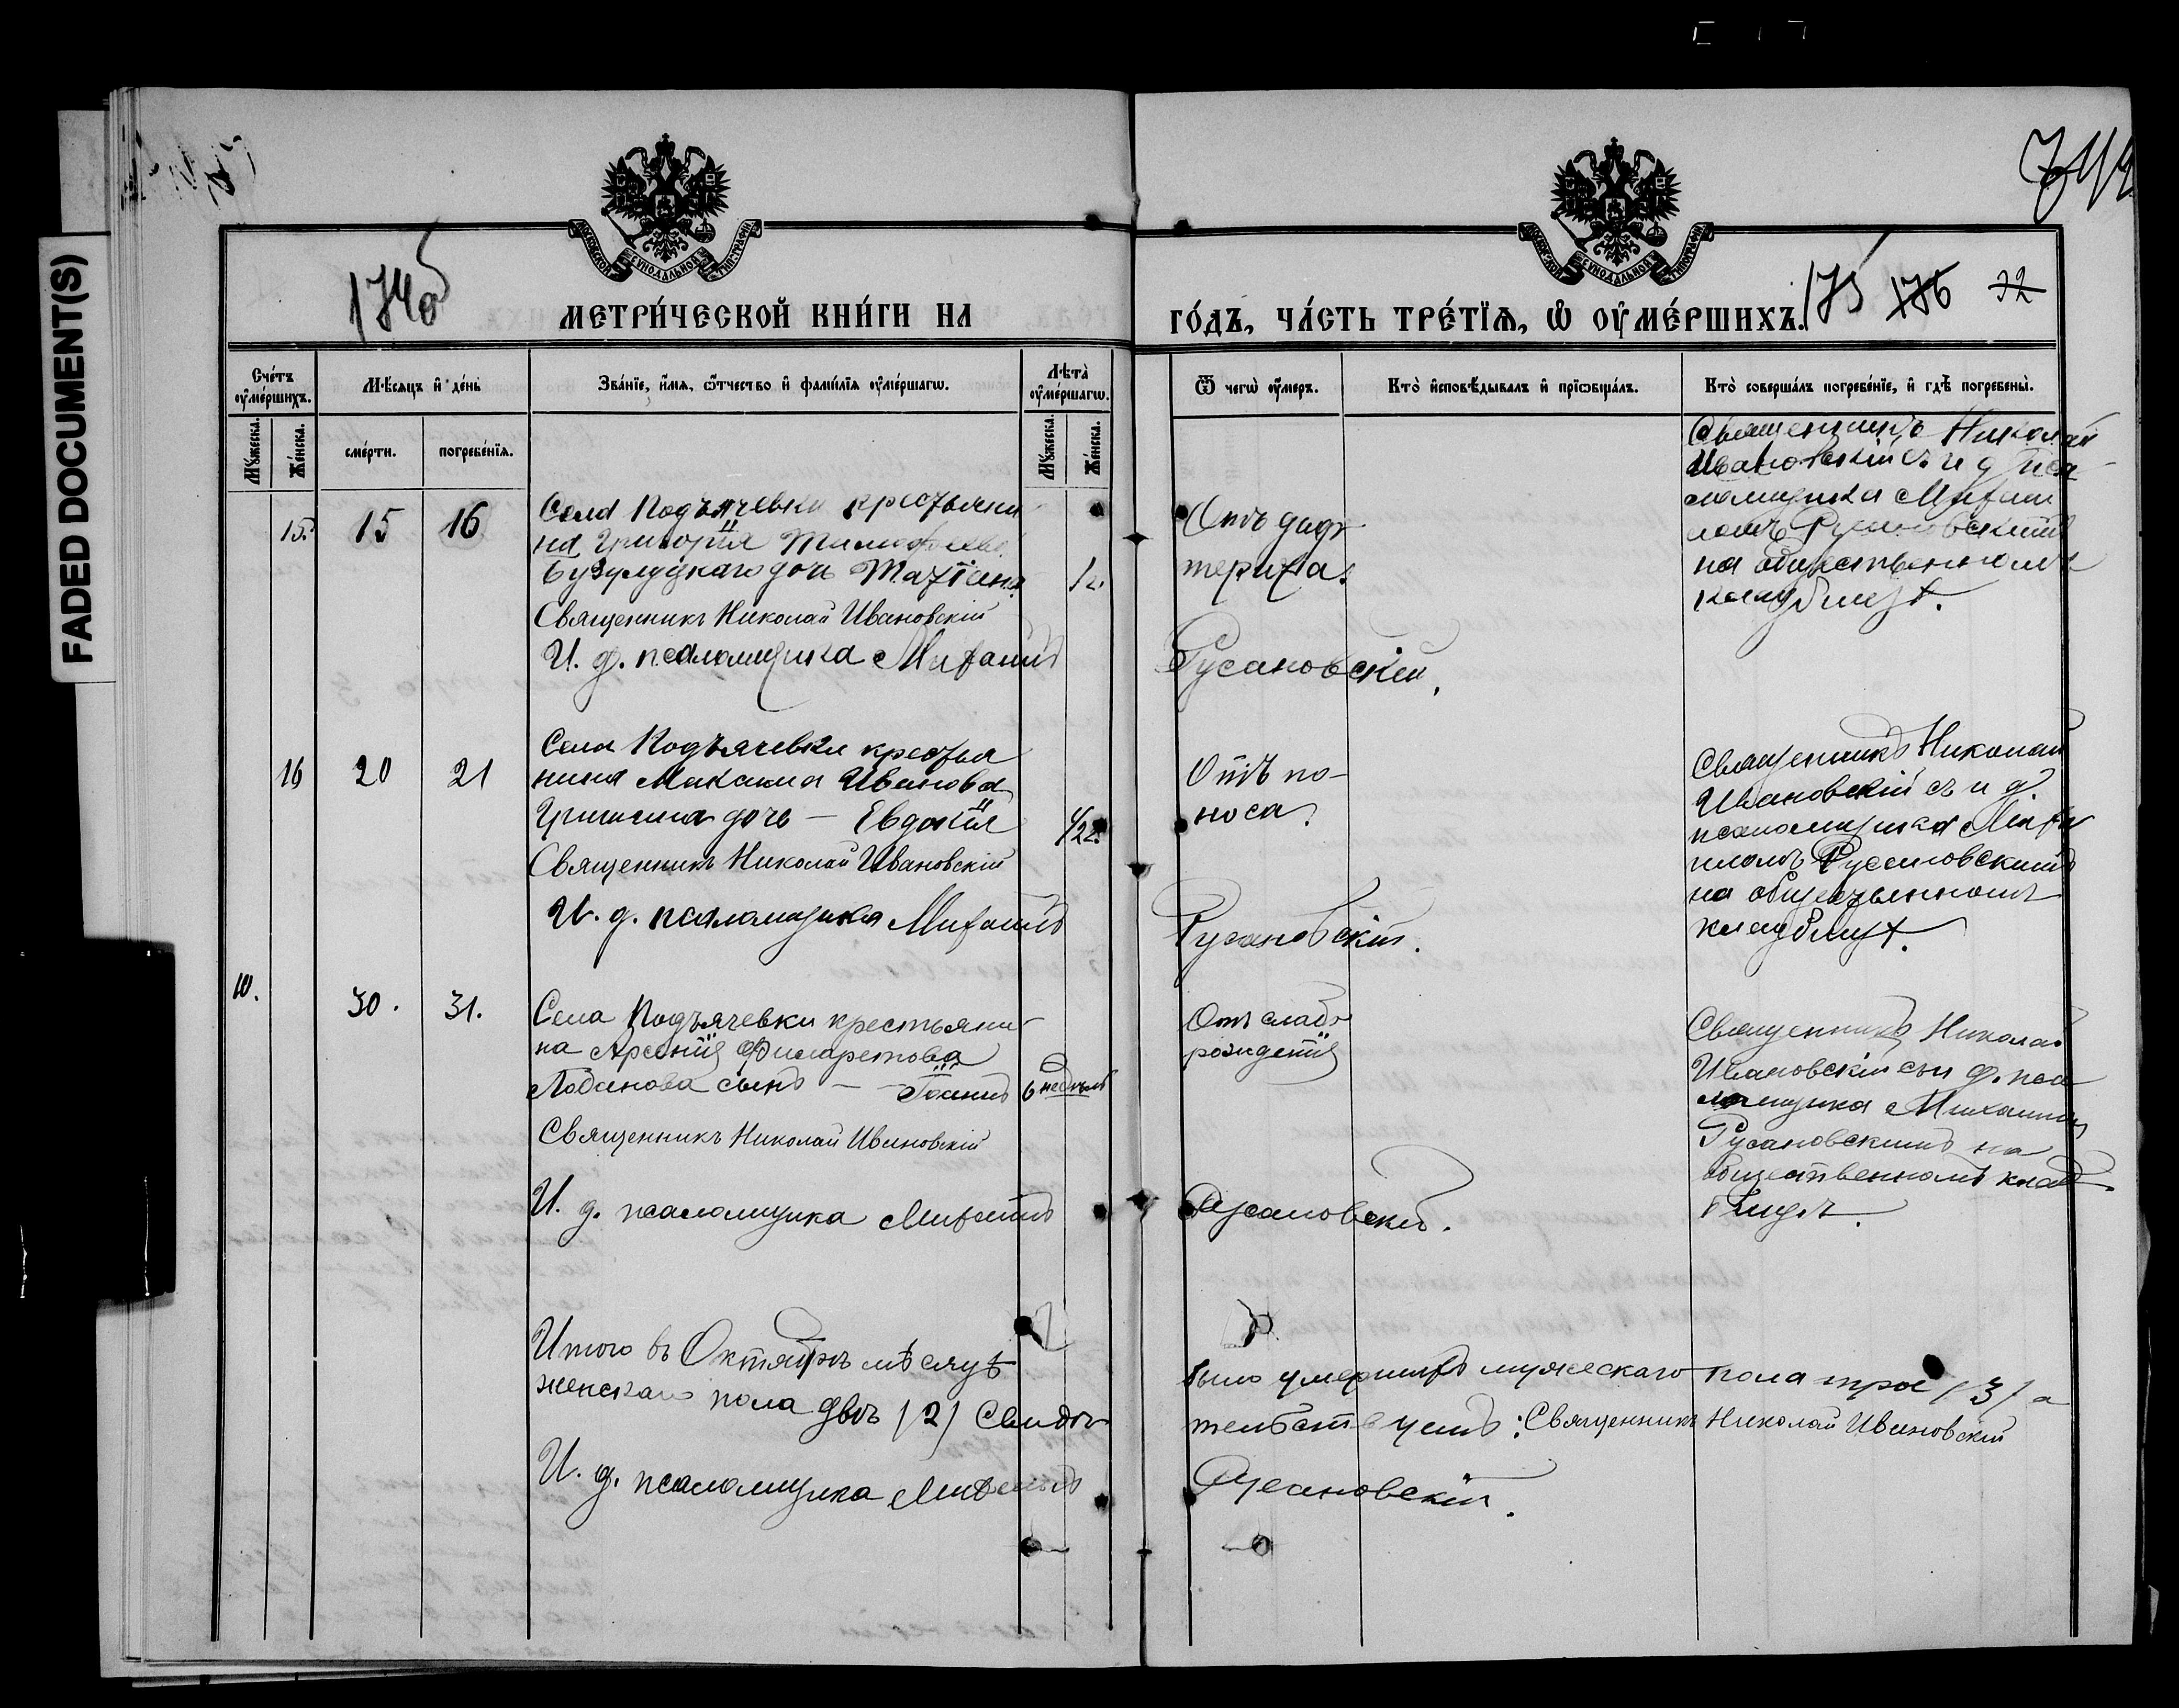 FADED DOCUMENT(S)
174об
МЕТРИ́ЧЕСКОЙ КНИ́ГИ НА
ГО́ДЪ, ЧА́СТЬ ТРЕ́ТЇѦ, Ѡ ОУМЕ́РШИХЪ.
175 176 32
Сче́тъ оуме́ршихъ.
Мѣ́сяцъ и де́нь
Зва́нїе, и́мя, о́тчество и фами́лїя оуме́ршагѡ.
Лѣта̀ оуме́ршагѡ.
Ѿ чегѡ̀ оу́меръ.
Кто̀ исповѣ́дывалъ и прїѡбща́лъ.
Кто̀ соверша́лъ погребе́нїе, и гдѣ̀ погребены̀.
Му́жеска.
Же́нска.
сме́рти.
погребе́нїя.
Му́жеска.
Же́нска.
15.
15
16
Села Подъячевки крестьяни-
на Григорія Тимофеева
Бузулуцкаго дочь Татіана
1 г.
Священникъ Николай Ивановскій
И. д. псаломщика Михаилъ
Отъ диф-
терита.
Русановскій.
Священникъ Николай
Ивановскій съ и д пса-
ломщика Михаи
ломъ Русановскимъ
на общественномъ
кладбищѣ.
16
20
21
Села Подъячевки крестья
нина Максима Иванова
Гришина дочь — Евдокія
1/2 г.
Священникъ Николай Ивановскій
И. д. псаломщика Михаилъ
Отъ по-
носа.
Русановскій.
Священникъ Николай
Ивановскій съ и д.
псаломщика Миха
иломъ Русановскимъ
на общественномъ
кладбищѣ.
10.
30.
31.
Села Подъячевки крестьяни-
на Арсенія Филаретова
Лобанова сынъ — Іоаннъ
6 недѣль
Священникъ Николай Ивановскій
И. д. псаломщика Михаилъ
Отъ слаб-
рожденія
Русановскій.
Священникъ Николай
Ивановскій съ и д. пса
ломщика Михаиломъ
Русановскимъ на
общественномъ клад-
бищѣ.
Итого въ Октябрѣ мѣсяцѣ
было умершихъ мужескаго пола три (3) а
женскаго пола двѣ (2) Свидѣ-
тельствуемъ: Священникъ Николай Ивановскій
И. д. псаломщика Михаилъ
Русановскій.